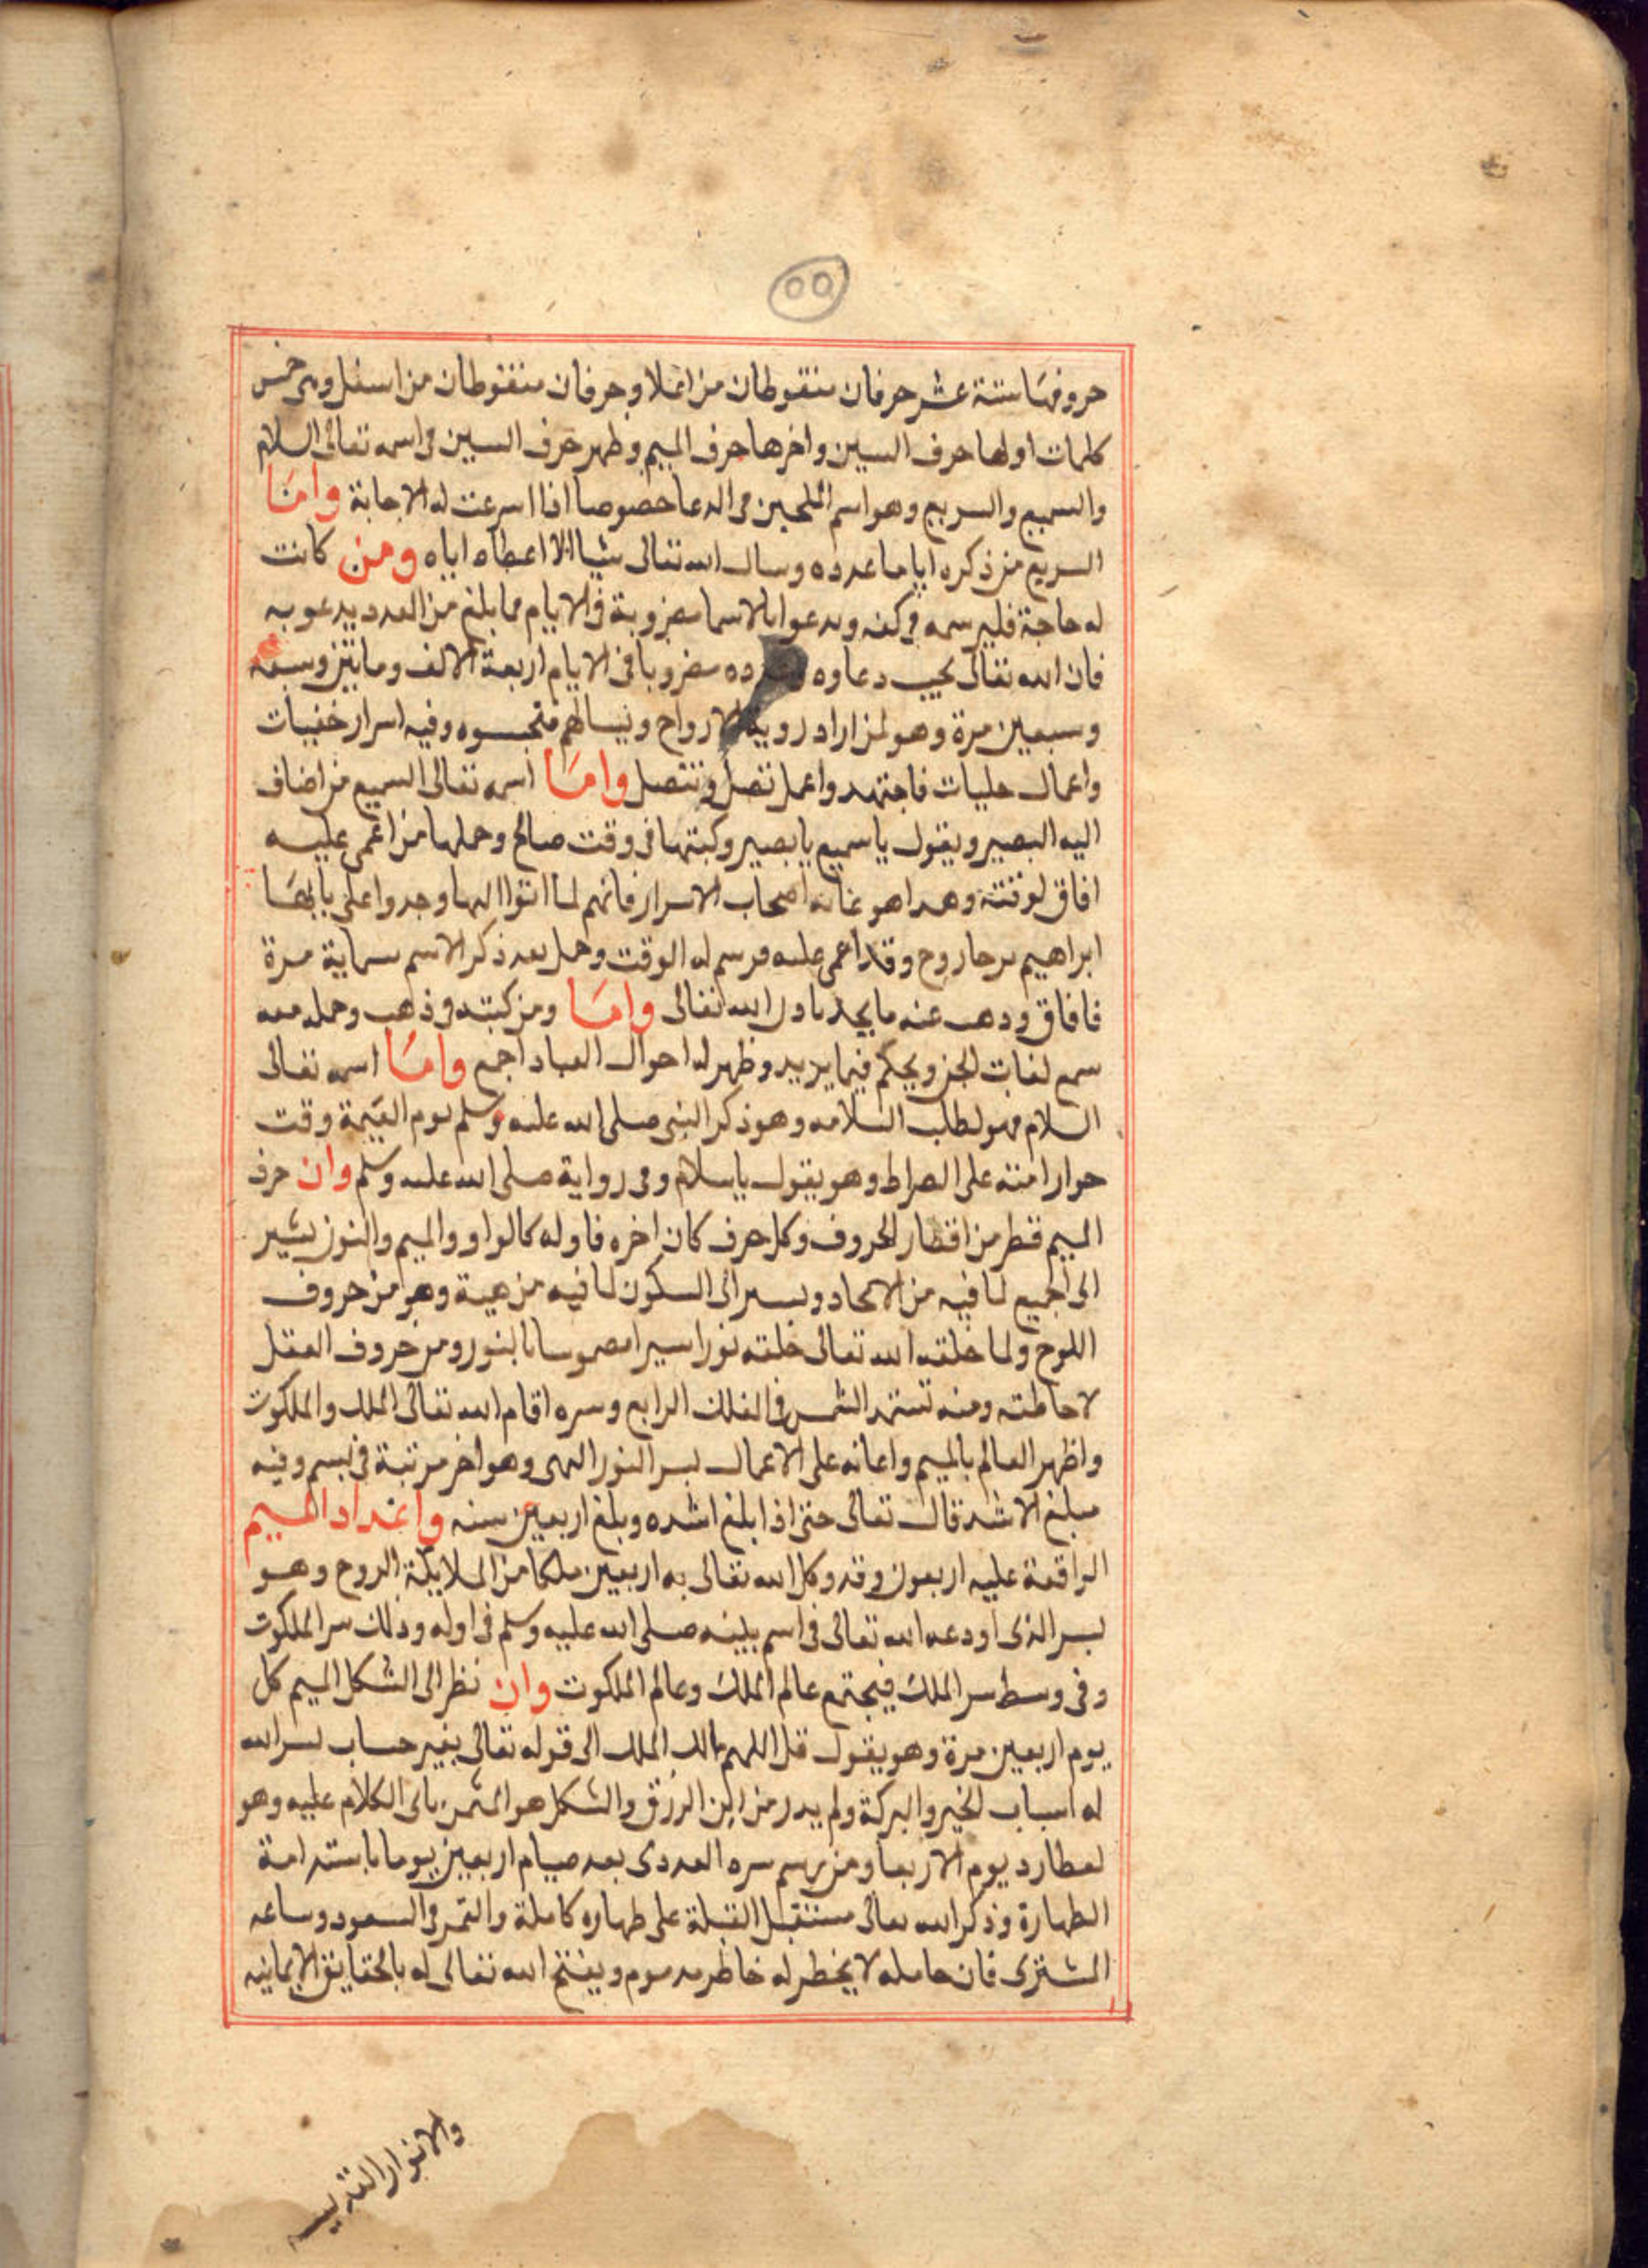 ٥٥
حروفها ستة عشر حرفان منقوطان من اعلا وحرفان منقوطان من اسفل وهى خمس
كلمات اولها حرف السين واخرها حرف الميم وظهر حرف السين فى اسمه تعالى السلام
والسميع والسريع وهو اسم الملحين فى الدعا خصوصا اذا اسرعت له الاجابة واما
السريع من ذكره اياما عدده وسال الله تعالى شيا الا اعطاه اياه ومن كانت
له حاجة فليرسمه فى كفه ويدعوا بالاسما مضروبة فى الايام فما بلغ من العدد يدعو به
فان الله تعالى يجيب دعاوه مضروبا فى الايام اربعة الالف ومايتين وسبعه
وسبعين مرة وهو لمن اراد روية الارواح ويسالهم فتجسوه وفيه اسرار خفيات
واعمال جليات فاجتهد واعمل تصل وتتصل واما اسمه تعالى السميع من اضاف
اليه البصير ويقول يا سميع يا بصير وكبتها فى وقت صالح وحملها من اغمى عليه
افاق لوقتة وهدا هو اصحاب الاسرار فانهم لما اتوا الها وجدوا على بابها
ابراهيم وقد اغمى عليه فرسم له الوقت وحمل بعد ذكر الاسم سماية مرة
فافاق ودهب عنه ما يجد بادن الله تعالى واما ومن كبته فى ذهب وحمله معه
سمع لغات الجن ويحكم فيما يريد وظهر له احوال العباد اجمع واما اسمه تعالى
السلام فهو لطلب السلامه وهو ذكر النبى صلى الله عليه وسلم يوم القيمة وقت
جواز امته على الصراط وهو يقول يا سلام وفى رواية صلى الله عليه وسلم وان حرف
الميم قطر من اقطار الحروف وكل حرف كان اخره فاوله كالواو والميم والنون يشير
الى الجميع لما فيه من الاتحاد ويسير الى السكون لما فيه من هيبة وهو من حروف
اللوح ولما خلقه الله تعالى خلقه نورا بالنور ومن حروف العقل
لاحاطته ومنه تستمد الشمس فى الفلك الرابع وسره اقام الله تعالى الملك والملكوت
واظهر العالم بالميم واعانه على الاعمال بسر النور وهو اخر مرتبة فى بسم وفيه
مبلغ الاشد قال تعالى حتى اذا بلغ اشده وبلغ اربعين سنه واعداد الميم
الواقعة عليه اربعون وقد وكل الله تعالى به اربعين ملكا من الملايكة الروح وهو
بسر الذى اودعه الله تعالى فى اسم صلى الله عليه وسلم فى اوله وذلك سر الملكوت
وفى وسط سر الملك فيجتمع عالم الملك وعالم الملكوت وان نظر الى الشكل الميم كل
يوم اربعين مرة وهو يقول قل اللهم مالك الملك الى قوله تعالى بغير حساب يسر الله
له اسباب الخير والبركة ولم يدر من اين الرزق والشكل هو المثمن ياتى الكلام عليه وهو
لعطارد يوم الاربعا ومن يرسم سره العددى بعد صيام اربعين يوما باستدامة
الطهارة وذكر الله تعالى مستقبل القبلة على طهاره كاملة والقمر فى السعود وساعه
المشترى فان حامله لا يخطر له خاطر مدموم ويفتح الله تعالى له بالحقايق الايمانيه
والانوار القدسيه